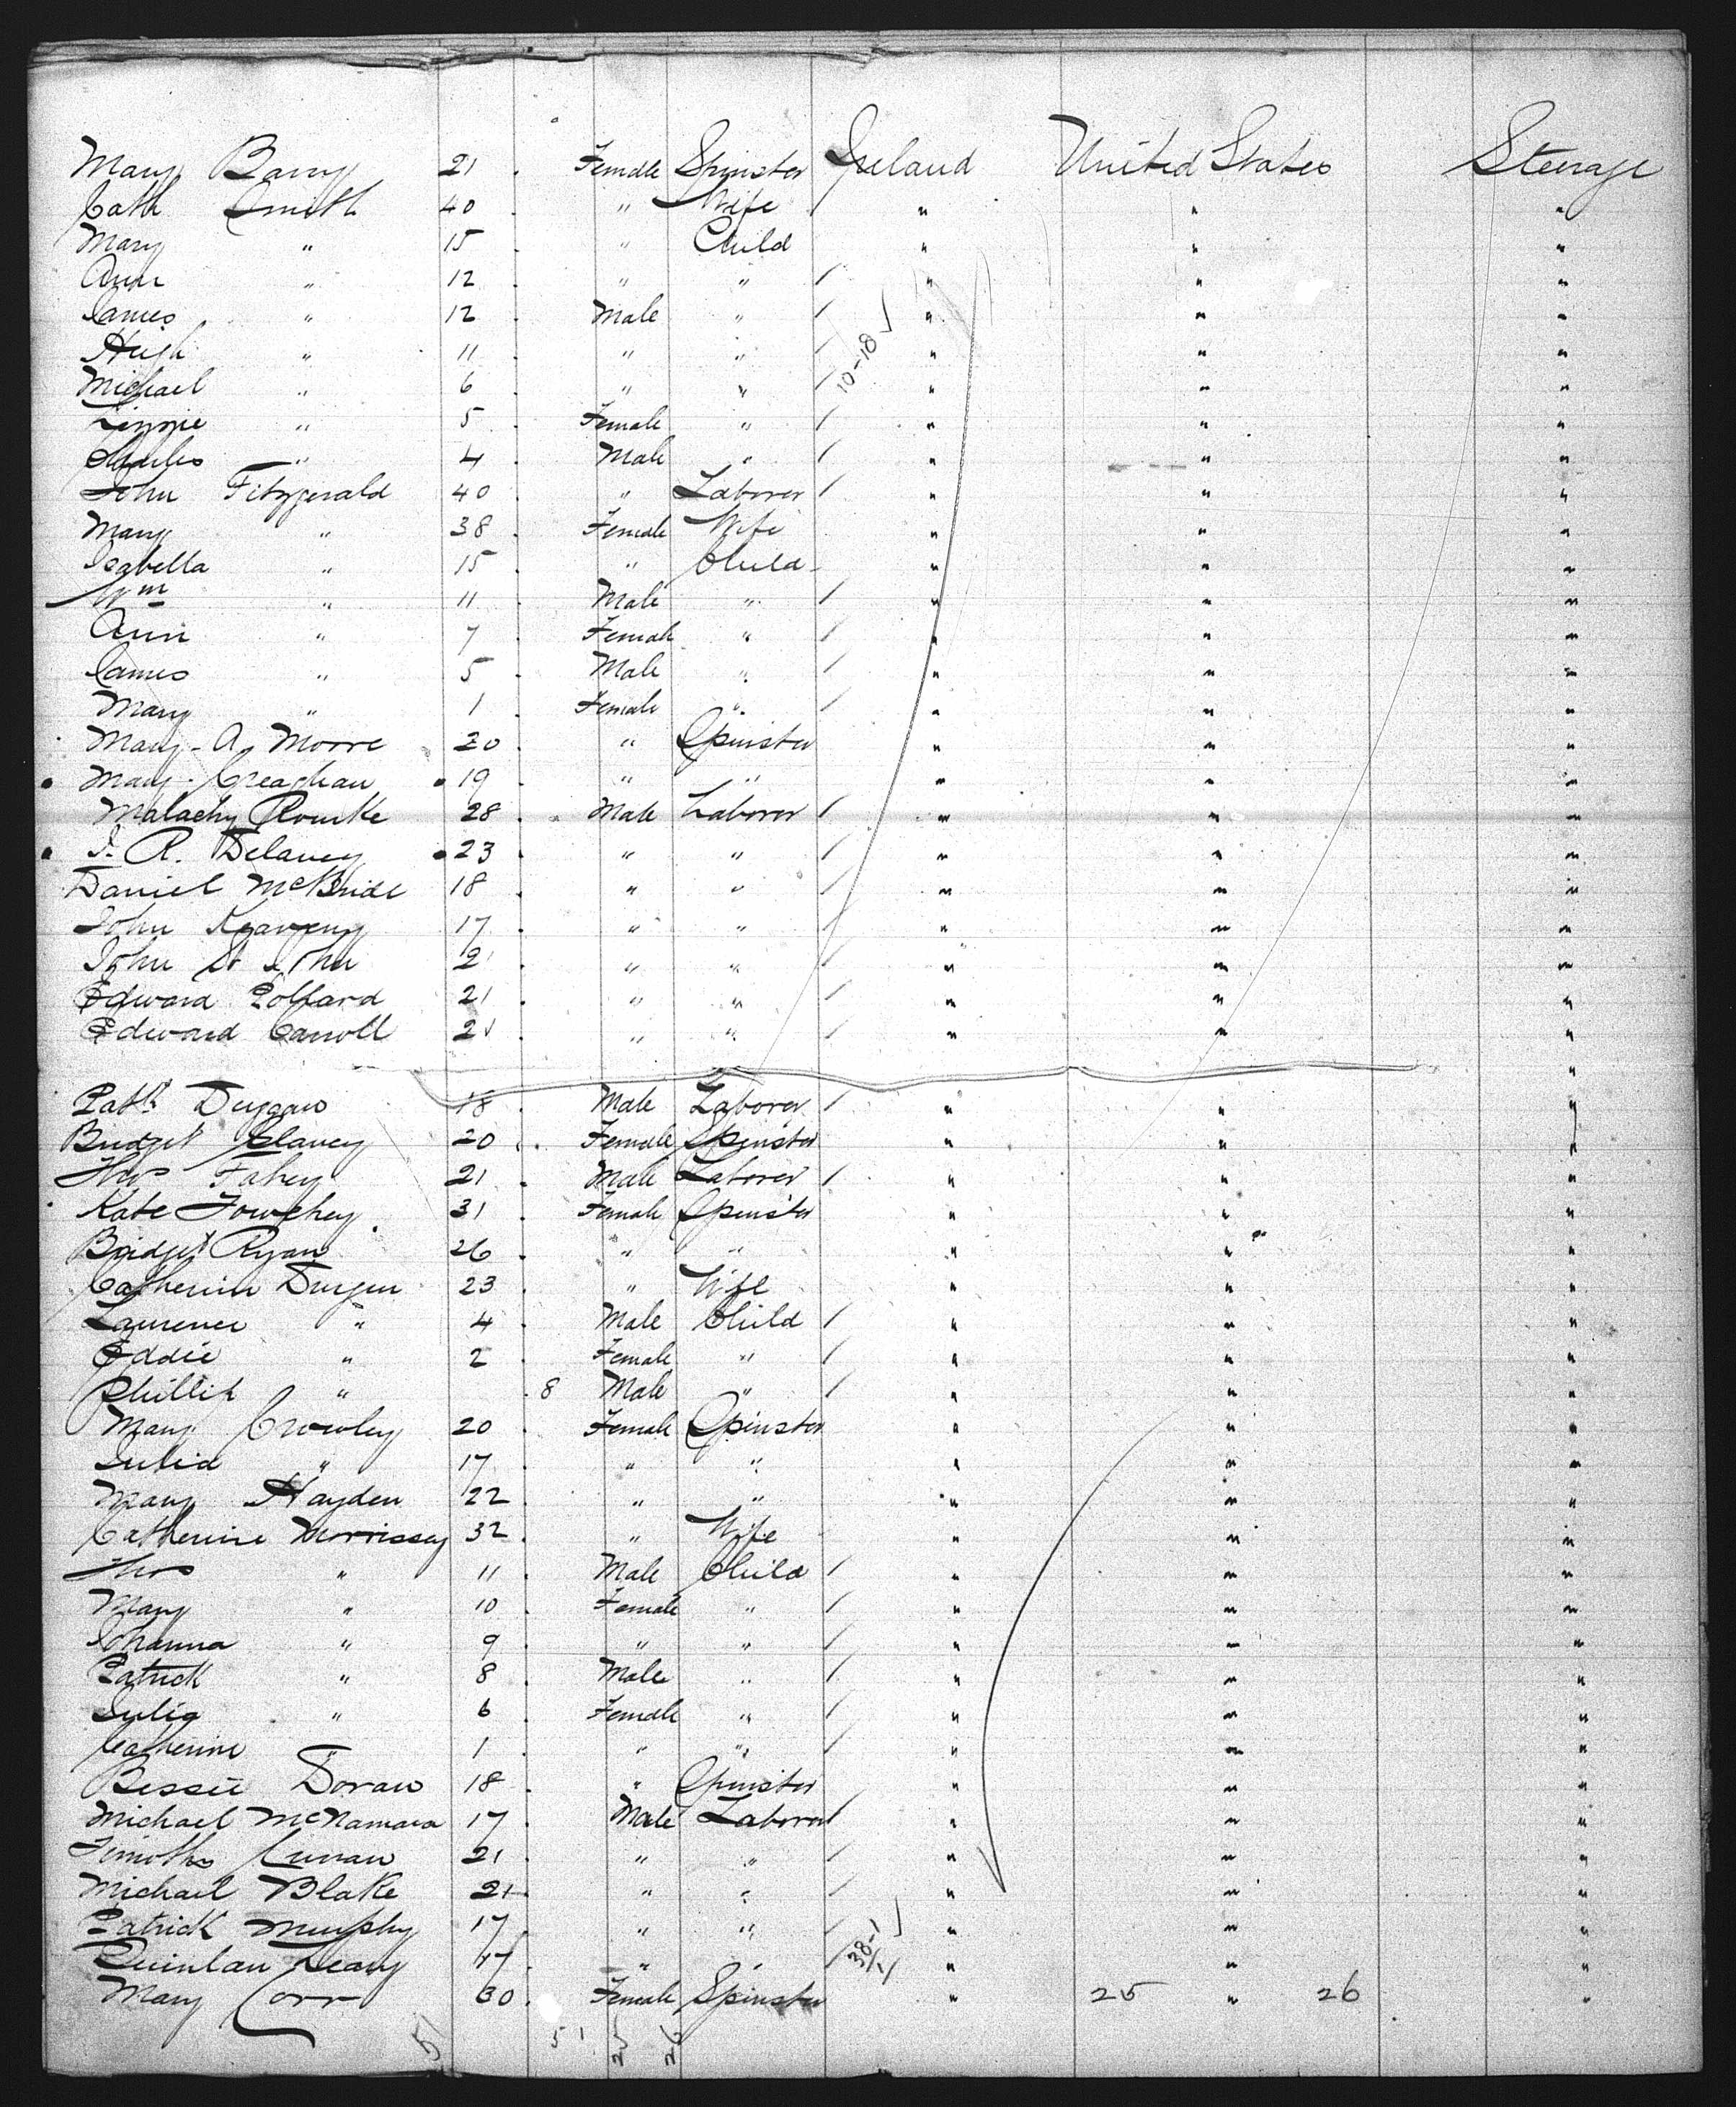 Mary Barry 21 Female Spinster Ireland United States Steerage
Cath Smith 40 " Wife / " " "
Mary " 15 " Child " " "
Ann " 12 " " / " " "
James " 12 Male " / " " "
Hugh " 11 " " / " " "
Michael " 6 " " / 10-18 ✓ " " "
Lizzie " 5 Female " / " " "
Charles " 4 Male " / " " "
John Fitzgerald 40 " Laborer / " " "
Mary " 38 Female Wife " " "
Isabella " 15 " Child - " " "
Wm " 11 Male " / " " "
Ann " 7 Female " / " " "
James " 5 Male " / " " "
Mary " 1 Female " / " " "
Mary - A. Moore 20 " Spinster " " "
Mary - Creaghan 19 " " " " "
Malachy Rourke 28 Male Laborer / " " "
J. R. Delaney 23 " " / " " "
Daniel McBride 18 " " / " " "
John Keaveny 17 " " / " " "
John St John 21 " " / " " "
Edward Pollard 21 " " / " " "
Edward Carroll 21 " " / " " "
"
Patk Duggan 18 Male Laborer / " " "
Bridget Clancy 20 Female Spinster " " "
Thos Fahey 21 Male Laborer / " " "
Kate 31 Female Spinster " " "
Bridget Ryan 26 " " " " "
Catherine Durgen 23 " Wife " " "
Laurence " 4 Male Child / " " "
Eddie " 2 Female " / " " "
Phillip " 8 Male " / " " "
Mary Crowley 20 Female Spinster " " "
Julia " 17 " " " " "
Mary Hayden 22 " " " " "
Catherine Morrissey 32 " Wife " " "
Thos " 11 Male Child / " " "
Mary " 10 Female " / " " "
Johanna " 9 " " / " " "
Patrick " 8 Male " / " " "
Julia " 6 Female " / " " "
Catherine " 1 " " / " " "
Bessie Doran 18 " Spinster " " "
Michael McNamara 17 Male Laborer / " " "
Timothy Curran 21 " " / " " "
Michael Blake 21 " " / " " "
Patrick Murphy 17 " " / " " "
Quinlan Leary 17 " " 38-1 ✓ " " "
Mary Corr 30 Female Spinster " 25 " 26 "
51 51 25 26